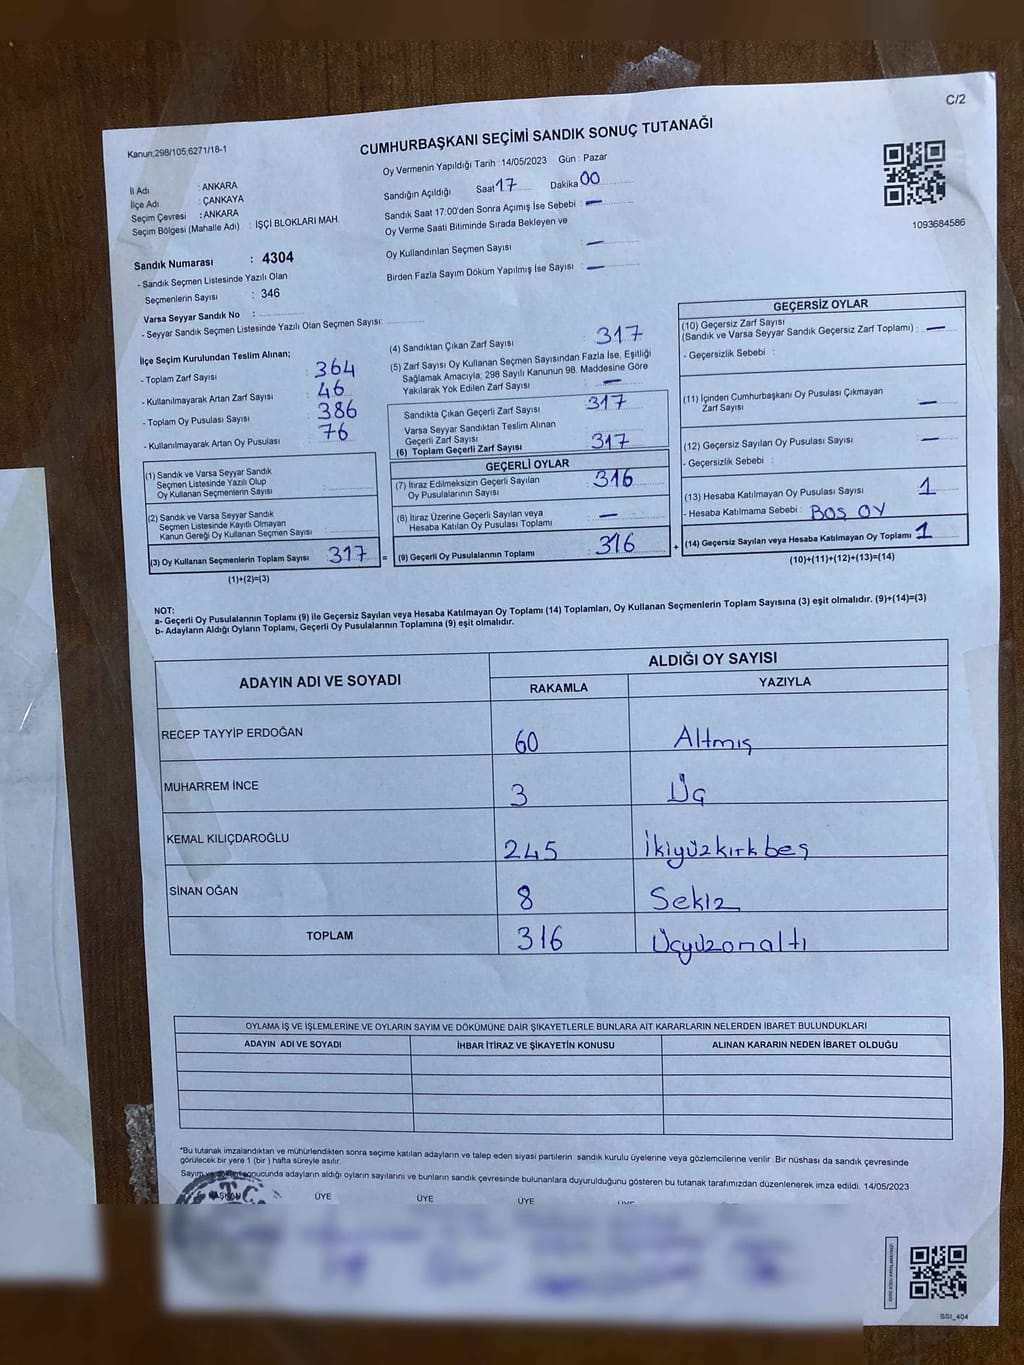 C/2
Kanun;298/105;6271/18-1
CUMHURBAŞKANI SEÇİMİ SANDIK SONUÇ TUTANAĞI
Oy Vermenin Yapıldığı Tarih : 14/05/2023 Gün : Pazar
İl Adı : ANKARA
İlçe Adı : ÇANKAYA
Seçim Çevresi : ANKARA
Seçim Bölgesi (Mahalle Adı) : İŞÇİ BLOKLARI MAH.
Sandık Numarası : 4304
- Sandık Seçmen Listesinde Yazılı Olan
Seçmenlerin Sayısı : 346
Varsa Seyyar Sandık No :
- Seyyar Sandık Seçmen Listesinde Yazılı Olan Seçmen Sayısı:
Sandığın Açıldığı Saat 17 Dakika 00
Sandık Saat 17:00'den Sonra Açımış İse Sebebi : —
Oy Verme Saati Bitiminde Sırada Bekleyen ve
Oy Kullandırılan Seçmen Sayısı : —
Birden Fazla Sayım Döküm Yapılmış İse Sayısı : —
1093684586
İlçe Seçim Kurulundan Teslim Alınan;
- Toplam Zarf Sayısı : 364
- Kullanılmayarak Artan Zarf Sayısı : 46
- Toplam Oy Pusulası Sayısı : 386
- Kullanılmayarak Artan Oy Pusulası : 76
(1) Sandık ve Varsa Seyyar Sandık
Seçmen Listesinde Yazılı Olup
Oy Kullanan Seçmenlerin Sayısı :
(2) Sandık ve Varsa Seyyar Sandık
Seçmen Listesinde Kayıtlı Olmayan
Kanun Gereği Oy Kullanan Seçmen Sayısı :
(3) Oy Kullanan Seçmenlerin Toplam Sayısı : 317 =
(1)+(2)=(3)
(4) Sandıktan Çıkan Zarf Sayısı : 317
(5) Zarf Sayısı Oy Kullanan Seçmen Sayısından Fazla İse, Eşitliği
Sağlamak Amacıyla; 298 Sayılı Kanunun 98. Maddesine Göre
Yakılarak Yok Edilen Zarf Sayısı : —
Sandıkta Çıkan Geçerli Zarf Sayısı : 317
Varsa Seyyar Sandıktan Teslim Alınan
Geçerli Zarf Sayısı :
(6) Toplam Geçerli Zarf Sayısı : 317
GEÇERLİ OYLAR
(7) İtiraz Edilmeksizin Geçerli Sayılan
Oy Pusulalarının Sayısı : 316
(8) İtiraz Üzerine Geçerli Sayılan veya
Hesaba Katılan Oy Pusulası Toplamı : —
(9) Geçerli Oy Pusulalarının Toplamı : 316 +
GEÇERSİZ OYLAR
(10) Geçersiz Zarf Sayısı
(Sandık ve Varsa Seyyar Sandık Geçersiz Zarf Toplamı) : —
- Geçersizlik Sebebi :
(11) İçinden Cumhurbaşkanı Oy Pusulası Çıkmayan
Zarf Sayısı : —
(12) Geçersiz Sayılan Oy Pusulası Sayısı : —
- Geçersizlik Sebebi :
(13) Hesaba Katılmayan Oy Pusulası Sayısı : 1
- Hesaba Katılmama Sebebi : BOŞ OY
(14) Geçersiz Sayılan veya Hesaba Katılmayan Oy Toplamı : 1
(10)+(11)+(12)+(13)=(14)
NOT:
a- Geçerli Oy Pusulalarının Toplamı (9) ile Geçersiz Sayılan veya Hesaba Katılmayan Oy Toplamı (14) Toplamları, Oy Kullanan Seçmenlerin Toplam Sayısına (3) eşit olmalıdır. (9)+(14)=(3)
b- Adayların Aldığı Oyların Toplamı, Geçerli Oy Pusulalarının Toplamına (9) eşit olmalıdır.
ADAYIN ADI VE SOYADI
ALDIĞI OY SAYISI
RAKAMLA YAZIYLA
RECEP TAYYİP ERDOĞAN 60 Altmış
MUHARREM İNCE 3 Üç
KEMAL KILIÇDAROĞLU 245 İkiyüzkırkbeş
SİNAN OĞAN 8 Sekiz
TOPLAM 316 Üçyüzonaltı
OYLAMA İŞ VE İŞLEMLERİNE VE OYLARIN SAYIM VE DÖKÜMÜNE DAİR ŞİKAYETLERLE BUNLARA AİT KARARLARIN NELERDEN İBARET BULUNDUKLARI
ADAYIN ADI VE SOYADI İHBAR İTİRAZ VE ŞİKAYETİN KONUSU ALINAN KARARIN NEDEN İBARET OLDUĞU
*Bu tutanak imzalandıktan ve mühürlendikten sonra seçime katılan adayların ve talep eden siyasi partilerin sandık kurulu üyelerine veya gözlemcilerine verilir. Bir nüshası da sandık çevresinde
görülecek bir yere 1 (bir ) hafta süreyle asılır.
Sayım sonucunda adayların aldığı oyların sayılarını ve bunların sandık çevresinde bulunanlara duyurulduğunu gösteren bu tutanak tarafımızdan düzenlenerek imza edildi. 14/05/2023
BAŞKAN ÜYE ÜYE ÜYE
SSI_404